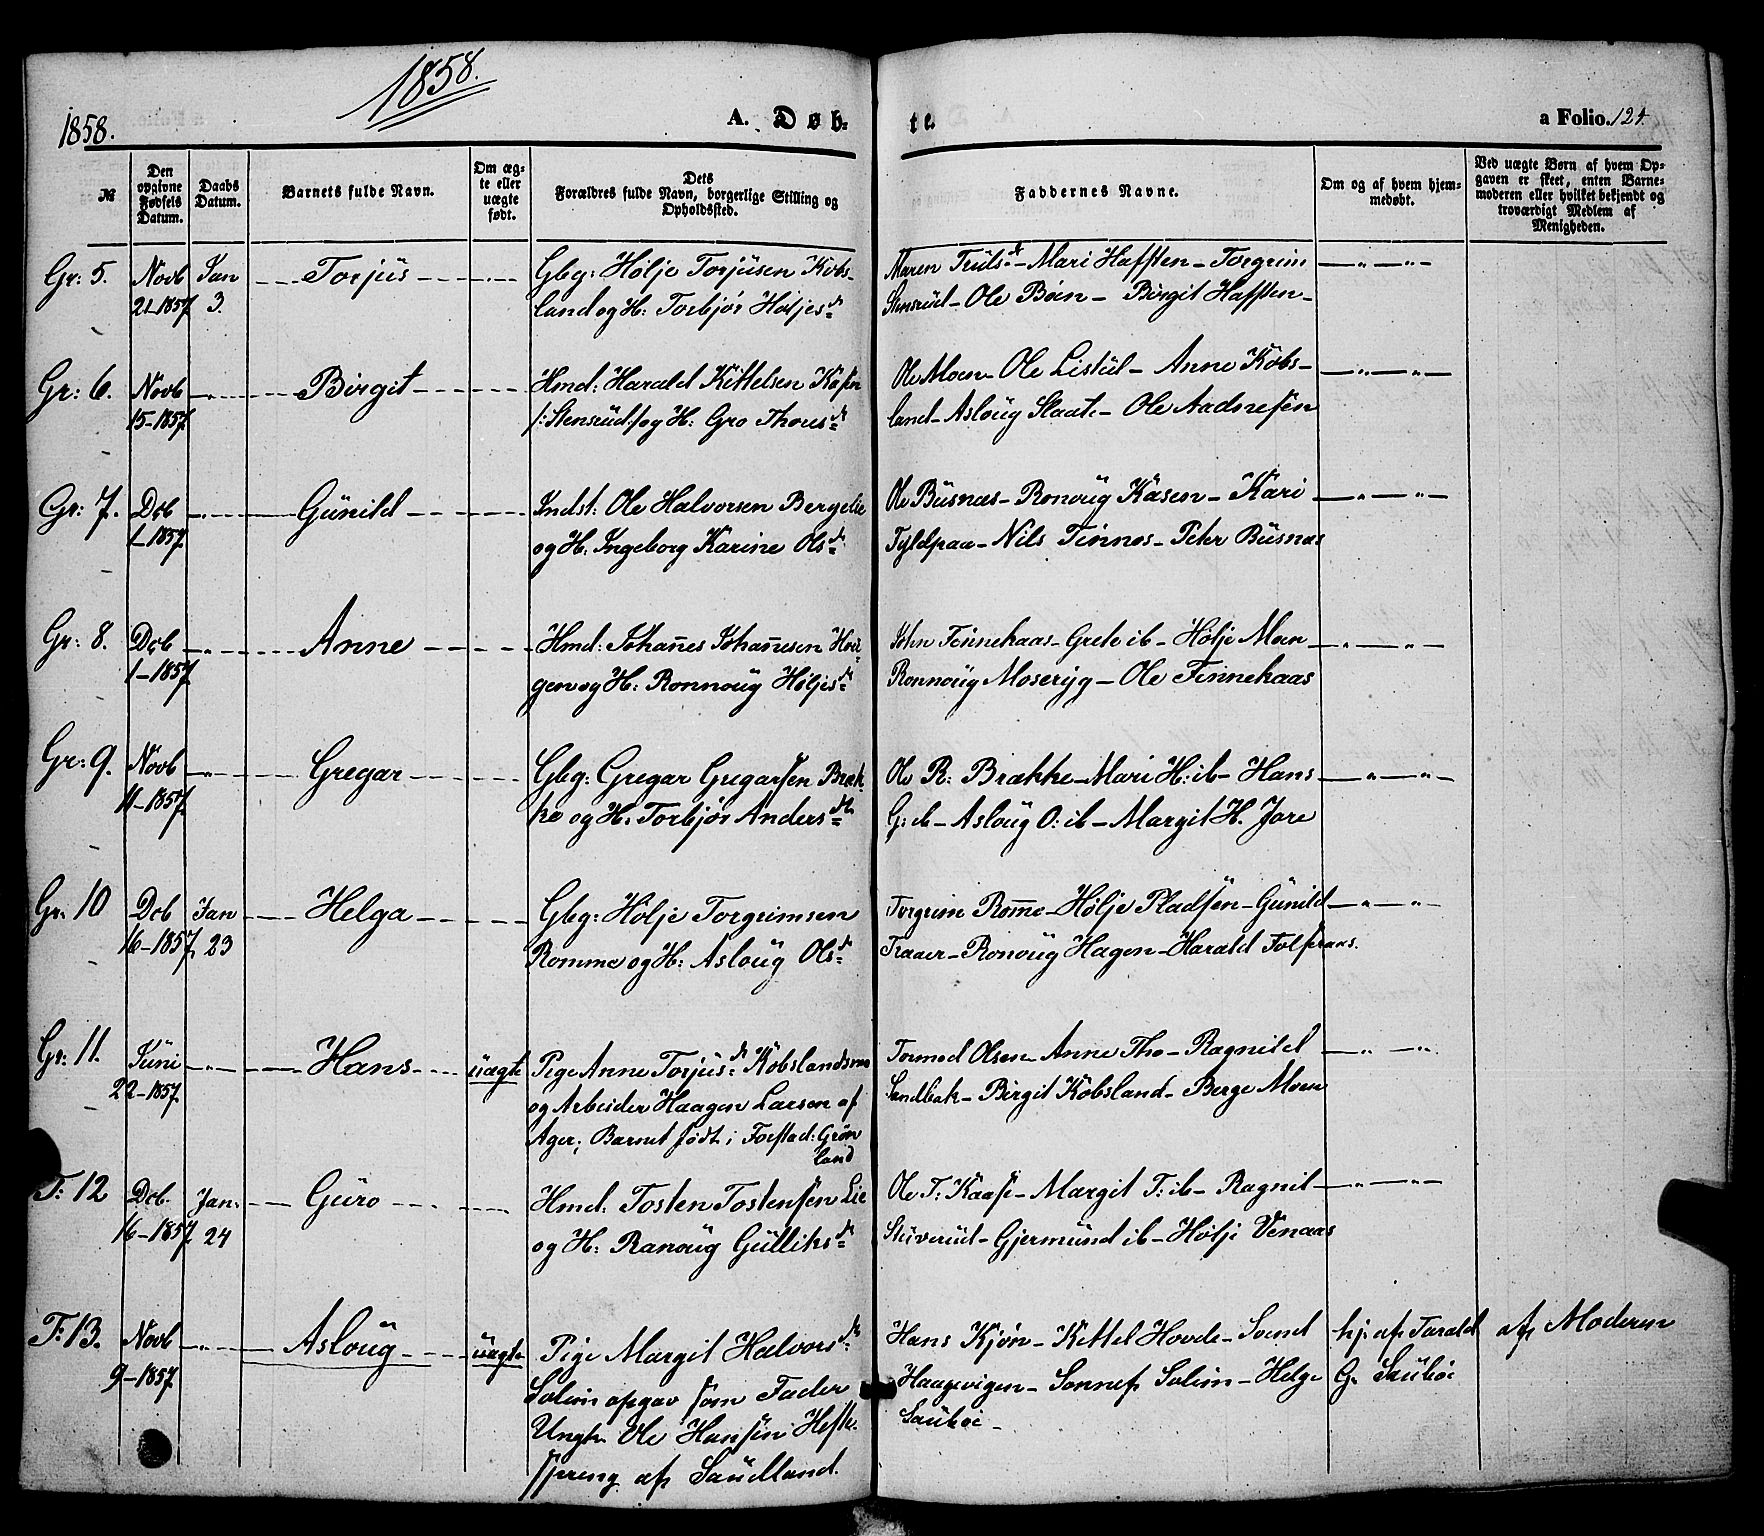 1858.
1858.
A. Døb-
te.
a Folio. 124
№
Den opgivne Fødsels Datum.
Daabs Datum.
Barnets fulde Navn.
Om æg-
te eller
uægte
født.
Dets
Forældres fulde Navn, borgerlige Stilling og
Opholdssted.
Faddernes Navne.
Om og af hvem hjem-
medøbt.
Ved uægte Børn af hvem Op-
gaven er skeet, enten Barne-
moderen eller hvilket bekjendt og
troværdigt Medlem af
Menigheden.
Gr: 5. Novb Jan Torjus Gbg: Hølje Torjusen Kobs-
21-1857 3. land og H: Torbjør Høljesd:
Maren Trulsd: - Mari Hafsten - Torgrim
Stensrud - Ole Böen - Birgit Hafsten -
Gr: 6. Novb Birgit Hmd: Harald Kittelsen Kåsen
15-1857 /: Stensrud :/ og H: Gro Thovesd:
Ole Moen - Ole Listul - Anne Kobs-
land - Asloug Slaate - Ole Aadnesen
Gr: 7. Dcb Gunild Indst: Ole Halvorsen Bergelie
1-1857. og H: Ingeborg Karine Olsd:
Ole Busnæs - Ronoug Kåsen - Kari
- Nils Tinnes - Peter Busnæs
Gr: 8. Dcb Anne Hmd: Johannes Johannesen
1-1857 og H: Ronnoug Høljesd:
John Finnekaas - Grete ib - Hølje Moen
Ronnoug Moseryg - Ole Finnekaas
Gr: 9. Novb Gregar Gbg: Gregar Gregarsen Bræk-
11-1857. ke og H: Torbjør Andersdt:
Ole R: Brække - Mari H: ib - Hans
G: ib - Asloug O: ib - Margit H. Jore
Gr: 10 Dcb Jan Helga Gbg: Hølje Torgrimsen
16-1857 23 Romme og H: Asloug Olsd:
Torgrim Romme - Hølje Pladsen - Gunild
Traaer - Ronoug Hagen - Harald
Gr: 11. Juni Hans uægte Pige Anne Torjusd: Kobslandsmo
22-1857. og Arbeider Haagen Larsen af
Ager; Barnet født i Forstad: Grøn
land
Tormod Olsen - Anne Tho - Ragnild
Sandbak - Birgit Kobsland - Berge Moen
F: 12 Dcb. Jan: Guro Hmd: Tosten Tostensen Lie
16-1857 24 og H: Ranoug Gulliksd:
Ole T: Kaase - Margit T: ib - Ragnil
Stuverud - Gjermund ib - Hølje Venaas
F: 13. Novb Asloug uægte Pige Margit Halvorsd:
9-1857. Solem opgav som Fader
Ungk. Ole Hansen Hest-
spreng af Saudland.
Hans Kjøn - Kittel Hovde - Svend
Haagevigen - Sonnef Solem - Helge
Sauboe -
hj: af Tarald
G. Sauboe
af Moderen